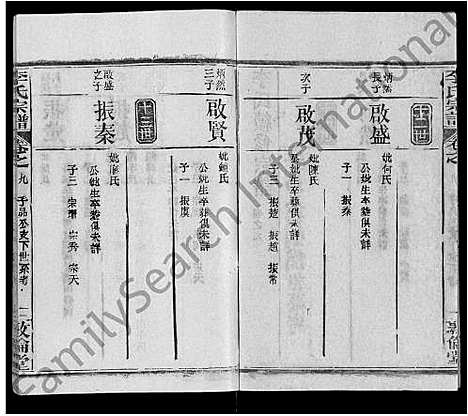 李氏宗譜
卷之
敦倫堂
十二世
炳然
長子
啟盛
妣何氏
公妣生卒葬俱未詳
子一 振秦
次子
啟茂
妣陳氏
公妣生卒葬俱未詳
子三 振超 振常
炳然
三子
啟賢
妣鍾氏
公妣生卒葬俱未詳
子一 振虞
十三世
啟盛
之子
振秦
妣廖氏
公妣生卒葬俱未詳
子三 宗秀 宗天
李氏宗譜
卷之九
下世系考
敦倫堂
FamilySearch International